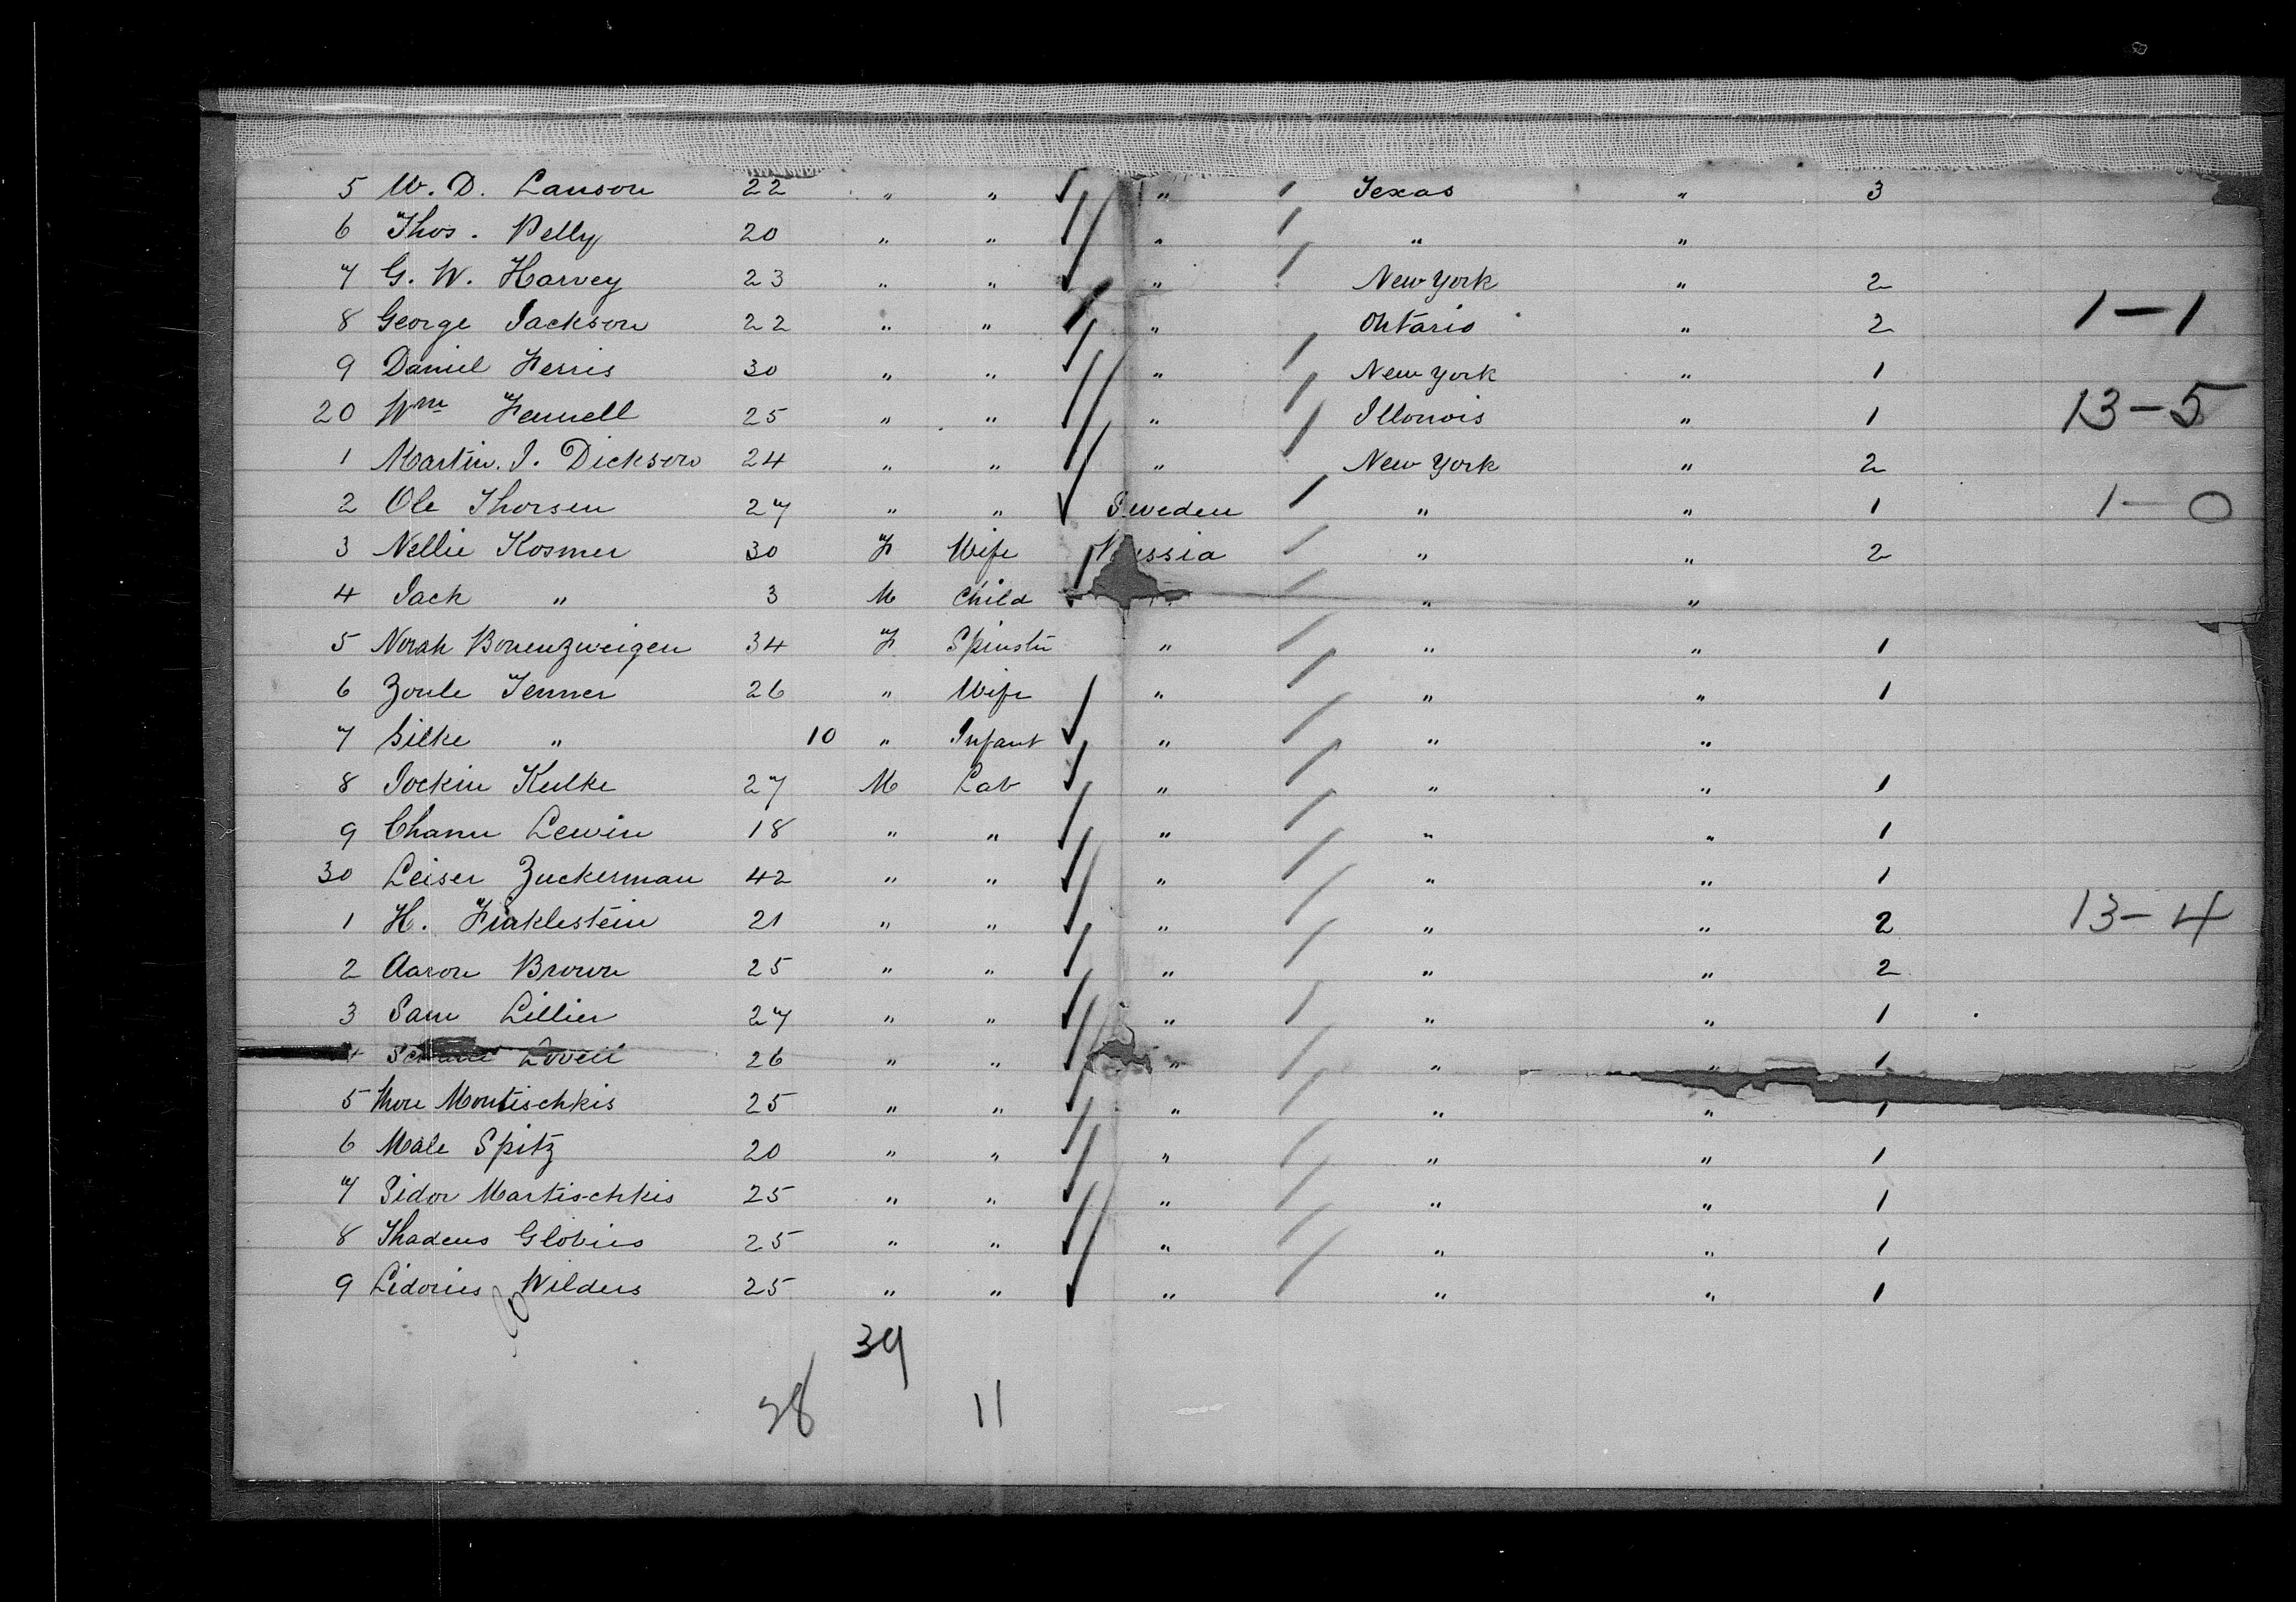 5 W. D. Lanson 22 " " " Texas " 3
6 Thos. Pelly 20 " " " " "
7 G. W. Harvey 23 " " " New York " 2
8 George Jackson 22 " " " Ontario " 2 1-1
9 Daniel Ferris 30 " " " New York " 1
20 Wm Fennell 25 " " " Illonois " 1 13-5
1 Martin. J. Dickson 24 " " " New York " 2
2 Ole Thorsen 27 " " Sweden " " 1 1-0
3 Nellie Kosmer 30 F Wife Russia " " 2
4 Jack " 3 M Child " "
5 Norah Bonenzweigen 34 F Spinstr " " " 1
6 Zoule Jenner 26 " Wife " " " 1
7 Silke " 10 " Infant " " "
8 Jockin Kulke 27 M Lab " " " 1
9 Chann Lewin 18 " " " " " 1
30 Leiser Zuckerman 42 " " " " " 1
1 H. Finklestein 21 " " " " " 2 13-4
2 Aaron Brown 25 " " " " " 2
3 Sam Lillier 27 " " " " " 1
4 26 " " " " " 1
5 More Montischkis 25 " " " " " 1
6 Male Spitz 20 " " " " " 1
7 Sidor Martischkis 25 " " " " " 1
8 Thadeus Globius 25 " " " " " 1
9 Lidorius Wilders 25 " " " " " 1
39
38 11